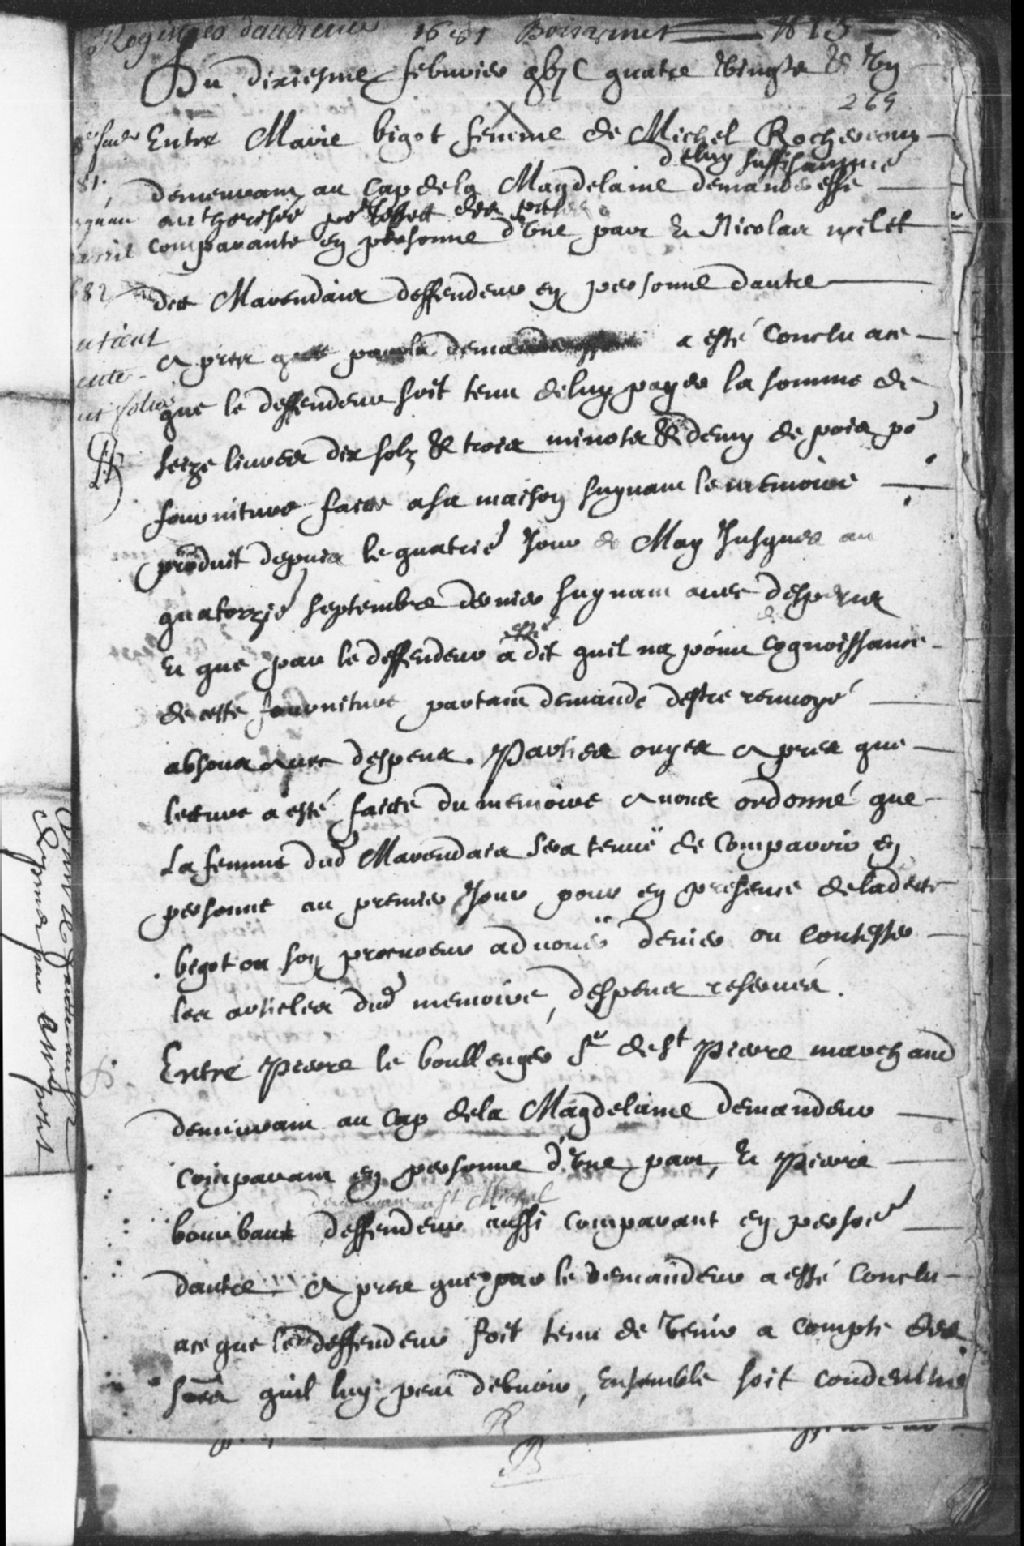 Registres daudience 1681 Boivinet #13
Du dixiesme febvrier gbjC quatre vingts & un
269
Entre Marie bigot femme de Michel Rochereau
deluy suffisamme
demeurant au Cap dela Magdelaine demanderesse
authorisée po leffect des pntes
comparante en personne d'une part Et Nicolas rivet
dit Marendaix deffendeur en personne dautre
Apres que par la demanderesse a esté Conclu ace
que le deffendeur soit tenu de luy payer la somme de
seize livres dix solz & trois minots & demy de pois po
fourniture faitte a sa maison suyvant le memoire
produit depuis le quatrie Jour de May Jusques au
quatorzie septembre dernier suyvant avec despens
Et que par le deffendeur a esté dit quil na point cognoissance
de cette fourniture partant demande destre renvoyé
absous avec despens. Parties ouyes Apres que
lecture a esté faitte du memoire Avons ordonné que
La femme dud Marendaix sera tenuë de Comparoir en
personne au premier Jour pour en presence deladite
bigot ou son procureur advouër denier ou Contester
les articles dud memoire, despens reservés.
Entre Pierre le boullenger Sr de St Pierre marchand
demeurant au Cap dela Magdelaine demandeur
Comparant en personne d'une part, Et Pierre
demeurant a St Michel
bourbaut deffendeur aussi Comparant en persone
dautre. Apres que par le demandeur a esté Conclu
ace que le deffendeur soit tenu de venir a compte des
soes quil luy peut debvoir, Ensemble soit condemné
81.
avril
682